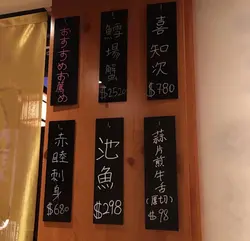 おすすめお薦め
鱈場蟹
$2520
喜知次
$780
赤睦刺身
$680
池魚
$298
蒜片煎牛舌
(厚切)
$98